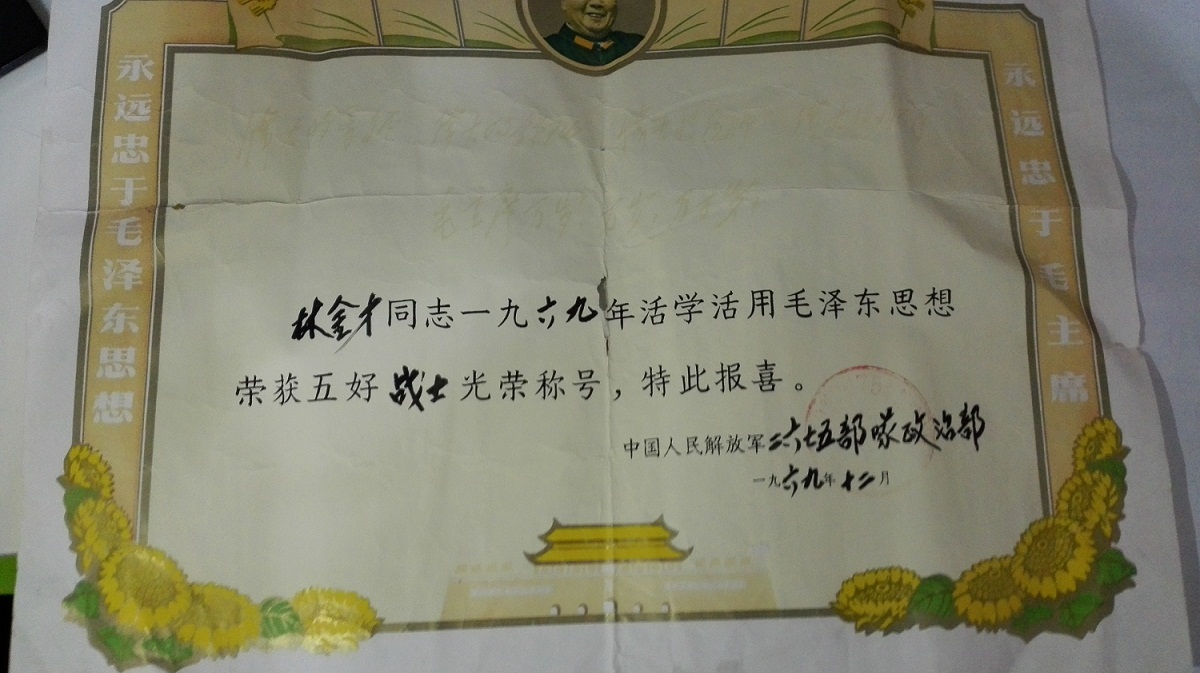 永远忠于毛泽东思想
永远忠于毛主席
毛主席万岁!万岁!万万岁!
林金才同志一九六九年活学活用毛泽东思想
荣获五好战士光荣称号，特此报喜。
中国人民解放军二六七五部队政治部
一九六九年十二月